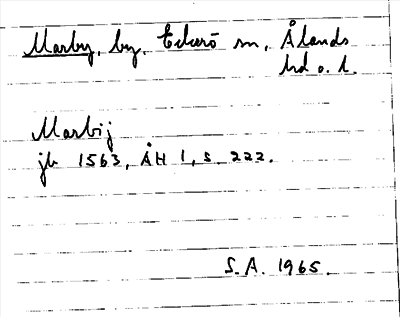 Marby, by, Eckerö sn, Ålands
hd o. l.
Marbij
jb 1563, ÅH 1, s. 222.
S.A. 1965.